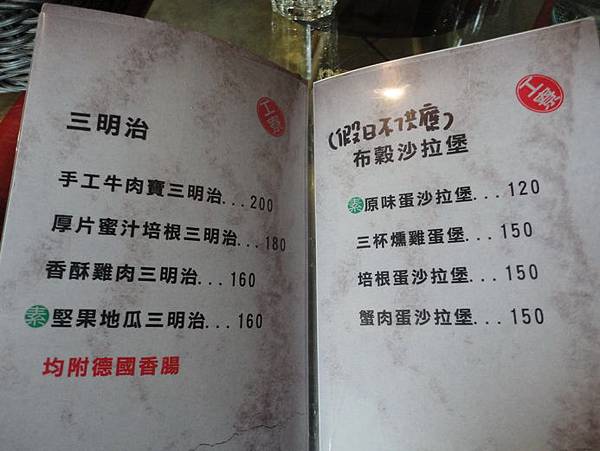 三明治
手工牛肉寶三明治...200
厚片蜜汁培根三明治...180
香酥雞肉三明治...160
素 堅果地瓜三明治...160
均附德國香腸
(假日不供應)
布穀沙拉堡
素 原味蛋沙拉堡...120
三杯燻雞蛋堡...150
培根蛋沙拉堡...150
蟹肉蛋沙拉堡...150